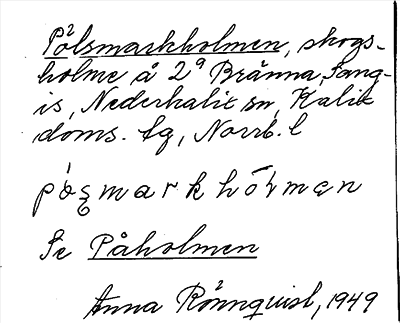 Pålsmarkholmen, skogs-
holme å 2ª Brånna, Sang-
is, Nederkalix sn, Kalix
doms. tg, Norrb. l
markhó
Se Påholmen
Anna Rönnquist, 1949